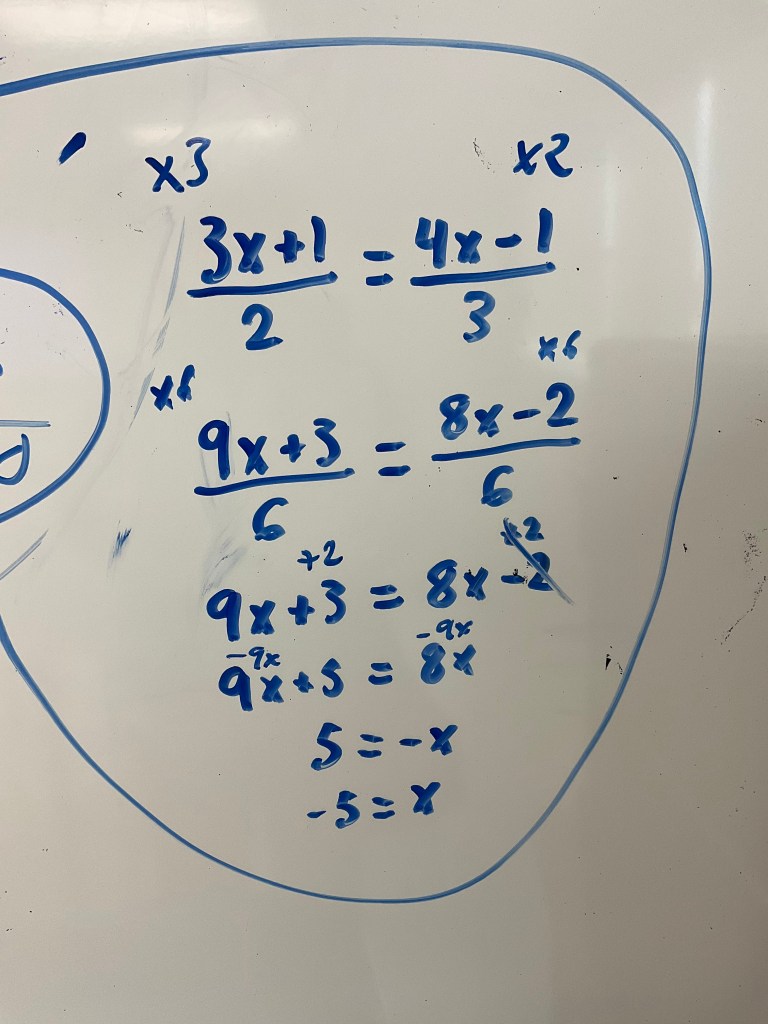 x3 x2
3x+1/2 = 4x-1/3
x6 x6
9x+3/6 = 8x-2/6
+2 +2
9x+3 = 8x-2
-9x -9x
9x+5 = 8x
5=-x
-5=x